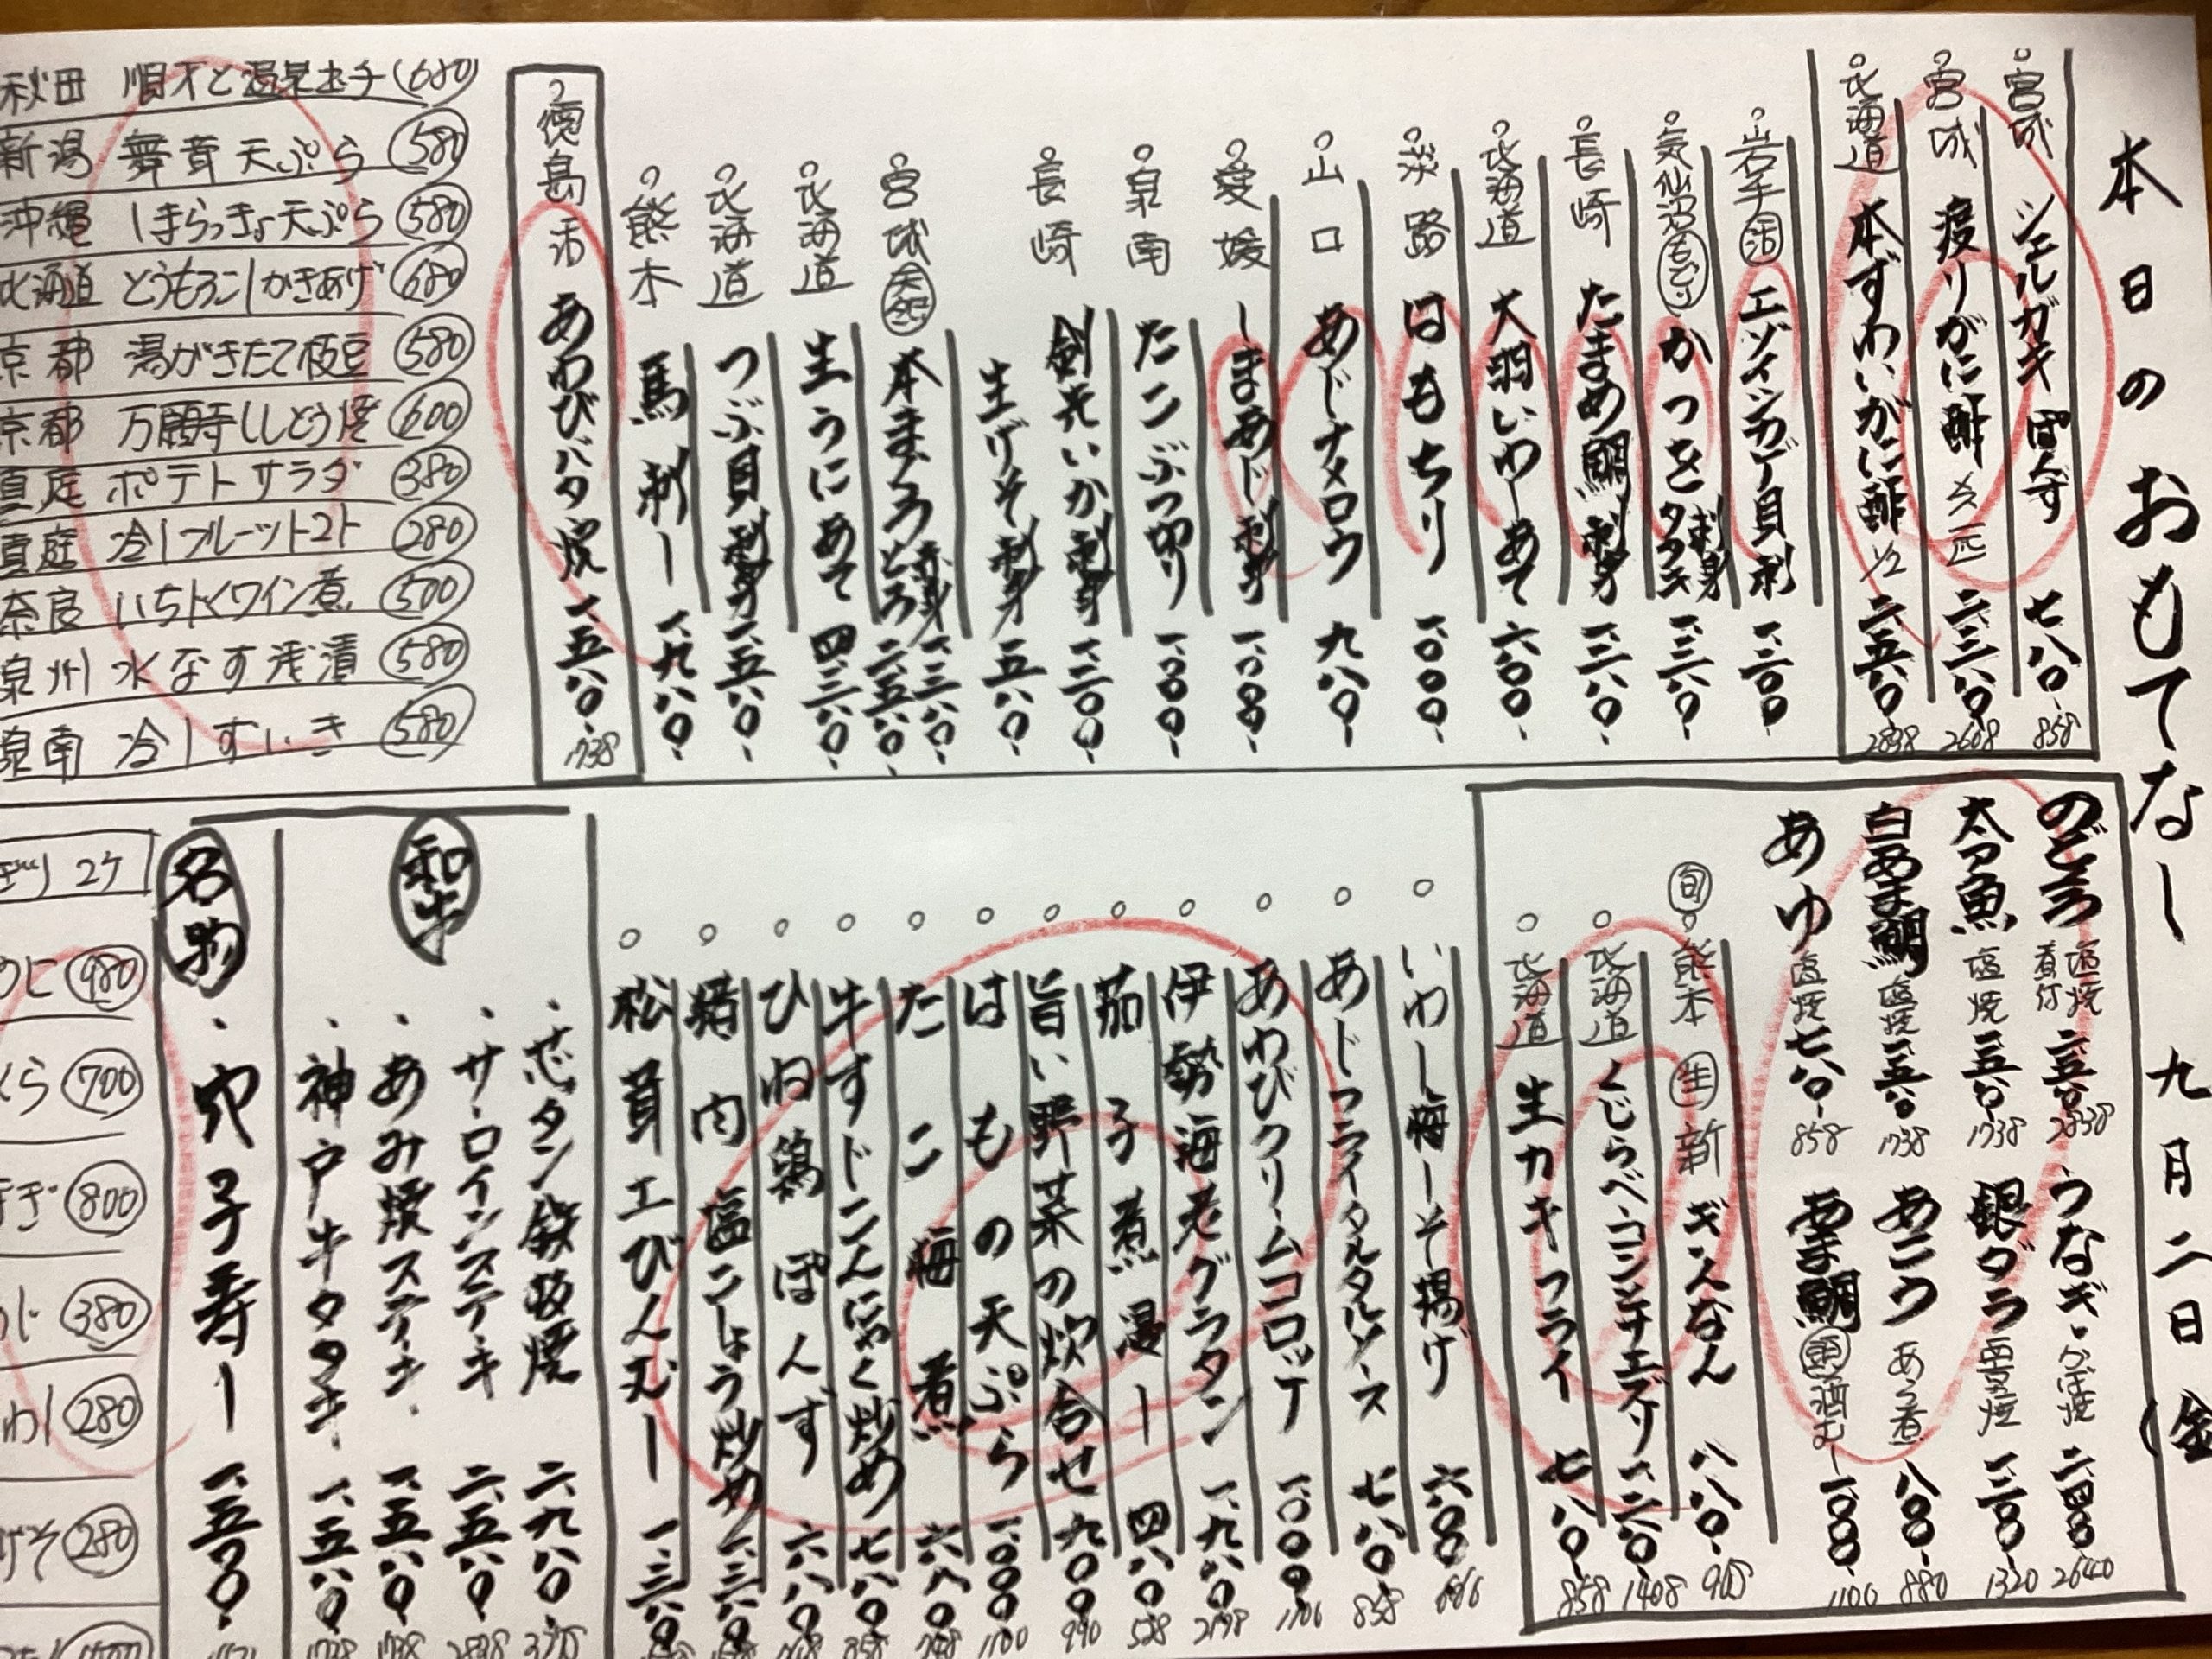 本日のおもてなし 九月二日(金
宮城 シェルガキぽんず 七八〇 858
宮城 渡りがに酢 メス一匹 二三八〇 2608
北海道 本ずわいがに酢 1/2 二五八〇 2838
岩手 活 エゾイシカゲ貝刺 一、二〇〇
気仙沼 もどり かつを 刺身 タタキ 一、三八〇
長崎 たまめ鯛刺身 一、二八〇
北海道 大羽いわしあて 六〇〇
淡路 はもちり 一、〇〇〇
山口 あじナメロウ 九八〇
愛媛 しまあじ刺身 一、〇〇〇
泉南 たこぶつ切り 一、〇〇〇
長崎 剣先いか刺身 一、二〇〇
生げそ刺身 五八〇
宮城 天然 本まぐろ 赤身 一、三八〇 とろ 二、五八〇
北海道 生うにあて 四、三八〇
北海道 つぶ貝刺身 一、五八〇
熊本 馬刺し 一、九八〇
徳島 活 あわびバタ焼 一、五八〇 1738
秋田 順才と温泉玉子 680
新潟 舞茸天ぷら 580
沖縄 しまらっきょ天ぷら 580
北海道 とうもろこしかきあげ 680
京都 湯がきたて枝豆 580
京都 万願寺ししとう焼 600
真庭 ポテトサラダ 380
真庭 冷しフルーツトマト 280
奈良 いちじくワイン煮 500
泉州 水なす浅漬 580
泉南 冷しずいき 580
のどぐろ 塩焼 煮付 二五八〇 2838
うなぎ かば焼 二、四〇〇 2640
太刀魚 塩焼 一、五八〇 1738
銀ダラ 西京焼 一、二〇〇 1320
白あま鯛 塩焼 一、五八〇 1738
あこう あら煮 八〇〇 880
あゆ 塩焼 七八〇 858
あま鯛 頭 酒むし 一、〇〇〇 1100
旬 熊本 生 新 ギンなん 八八〇 968
北海道 くじらベーコンとサエズリ 一、二八〇 1408
北海道 生カキフライ 七八〇 858
いわし梅しそ揚げ 六〇〇 660
あじフライタルタルソース 七八〇 858
あわびクリームコロッケ 一、〇〇〇 1100
伊勢海老グラタン 一、九八〇 2178
茄子煮浸し 四八〇 528
旨い野菜の炊合せ 九〇〇 990
はもの天ぷら 一、〇〇〇 1100
たこ梅煮 六八〇 748
牛すじこんにゃく炒め 七八〇 858
ひね鶏ぽんず 六八〇
猪肉塩こしょう炒め 一、三八〇
松茸土びんむし 一、三八〇
和牛
芯タン鉄板焼 二、九八〇
サーロインステーキ 二、五八〇 2838
あみ焼ステーキ 一、五八〇 1738
神戸牛タタキ 一、五八〇 1738
名物
穴子寿し 一、五七〇
ぎり 2ケ
980
くら 700
800
380
わし 280
げそ 280